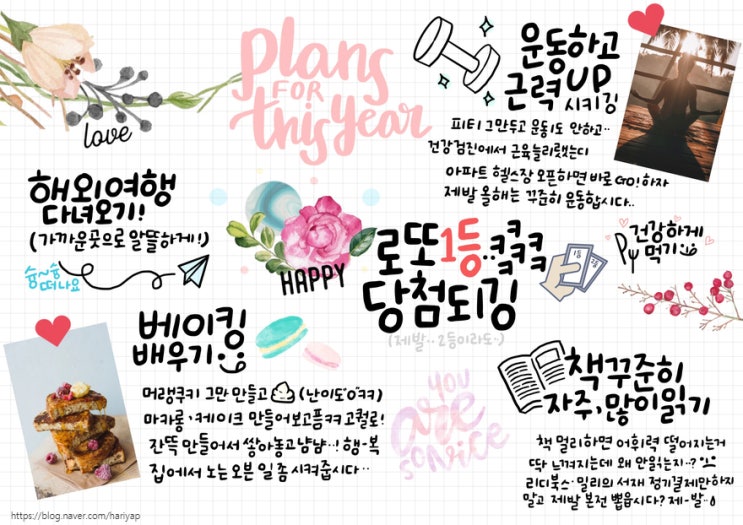 plans
FOR
this year
love
운동하고
근력 UP
시키깅
피티 그만두고 운동1도 안하고..
건강검진에서 근육늘리랬는디
아파트 헬스장 오픈하면 바로 GO! 하자
제발 올해는 꾸준히 운동합시다..
해외여행
다녀오기!
(가까운곳으로 알뜰하게!)
슝~슝
떠나요
HAPPY
로또1등..ㅋㅋㅋㅋ
당첨되깅
(제발..2등이라도..)
1등
2등
건강하게
먹기
베이킹
배우기
머랭쿠키 그만 만들고 (난이도"0"ㅋㅋ)
마카롱·케이크 만들어보고픔ㅋㅋ고퀄로!
잔뜩 만들어서 쌓아놓고 냠냠..! 행-복
집에서 노는 오븐 일 좀 시켜줍시다...
YOU
are
SO NICE
책 꾸준히
자주, 많이읽기
책 멀리하면 어휘력 떨어지는거
딱 느껴지는데 왜 안읽는지..?
리디북스·밀리의 서재 정기결제만하지
말고 제발 본전 뽑읍시다? 제-발..
https://blog.naver.com/hariyap